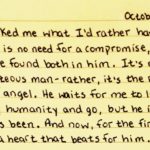 Octob
ked me what I'd rather ha
is no need for a compromise,
e found both in him. It's
teous man-rather, it's the
angel. He waits for me to l
humanity and go, but he i
s been. And now, for the fir
a heart that beats for him.